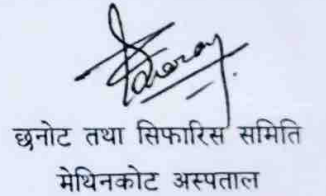 छनोट तथा सिफारिस समिति
मेथिनकोट अस्पताल